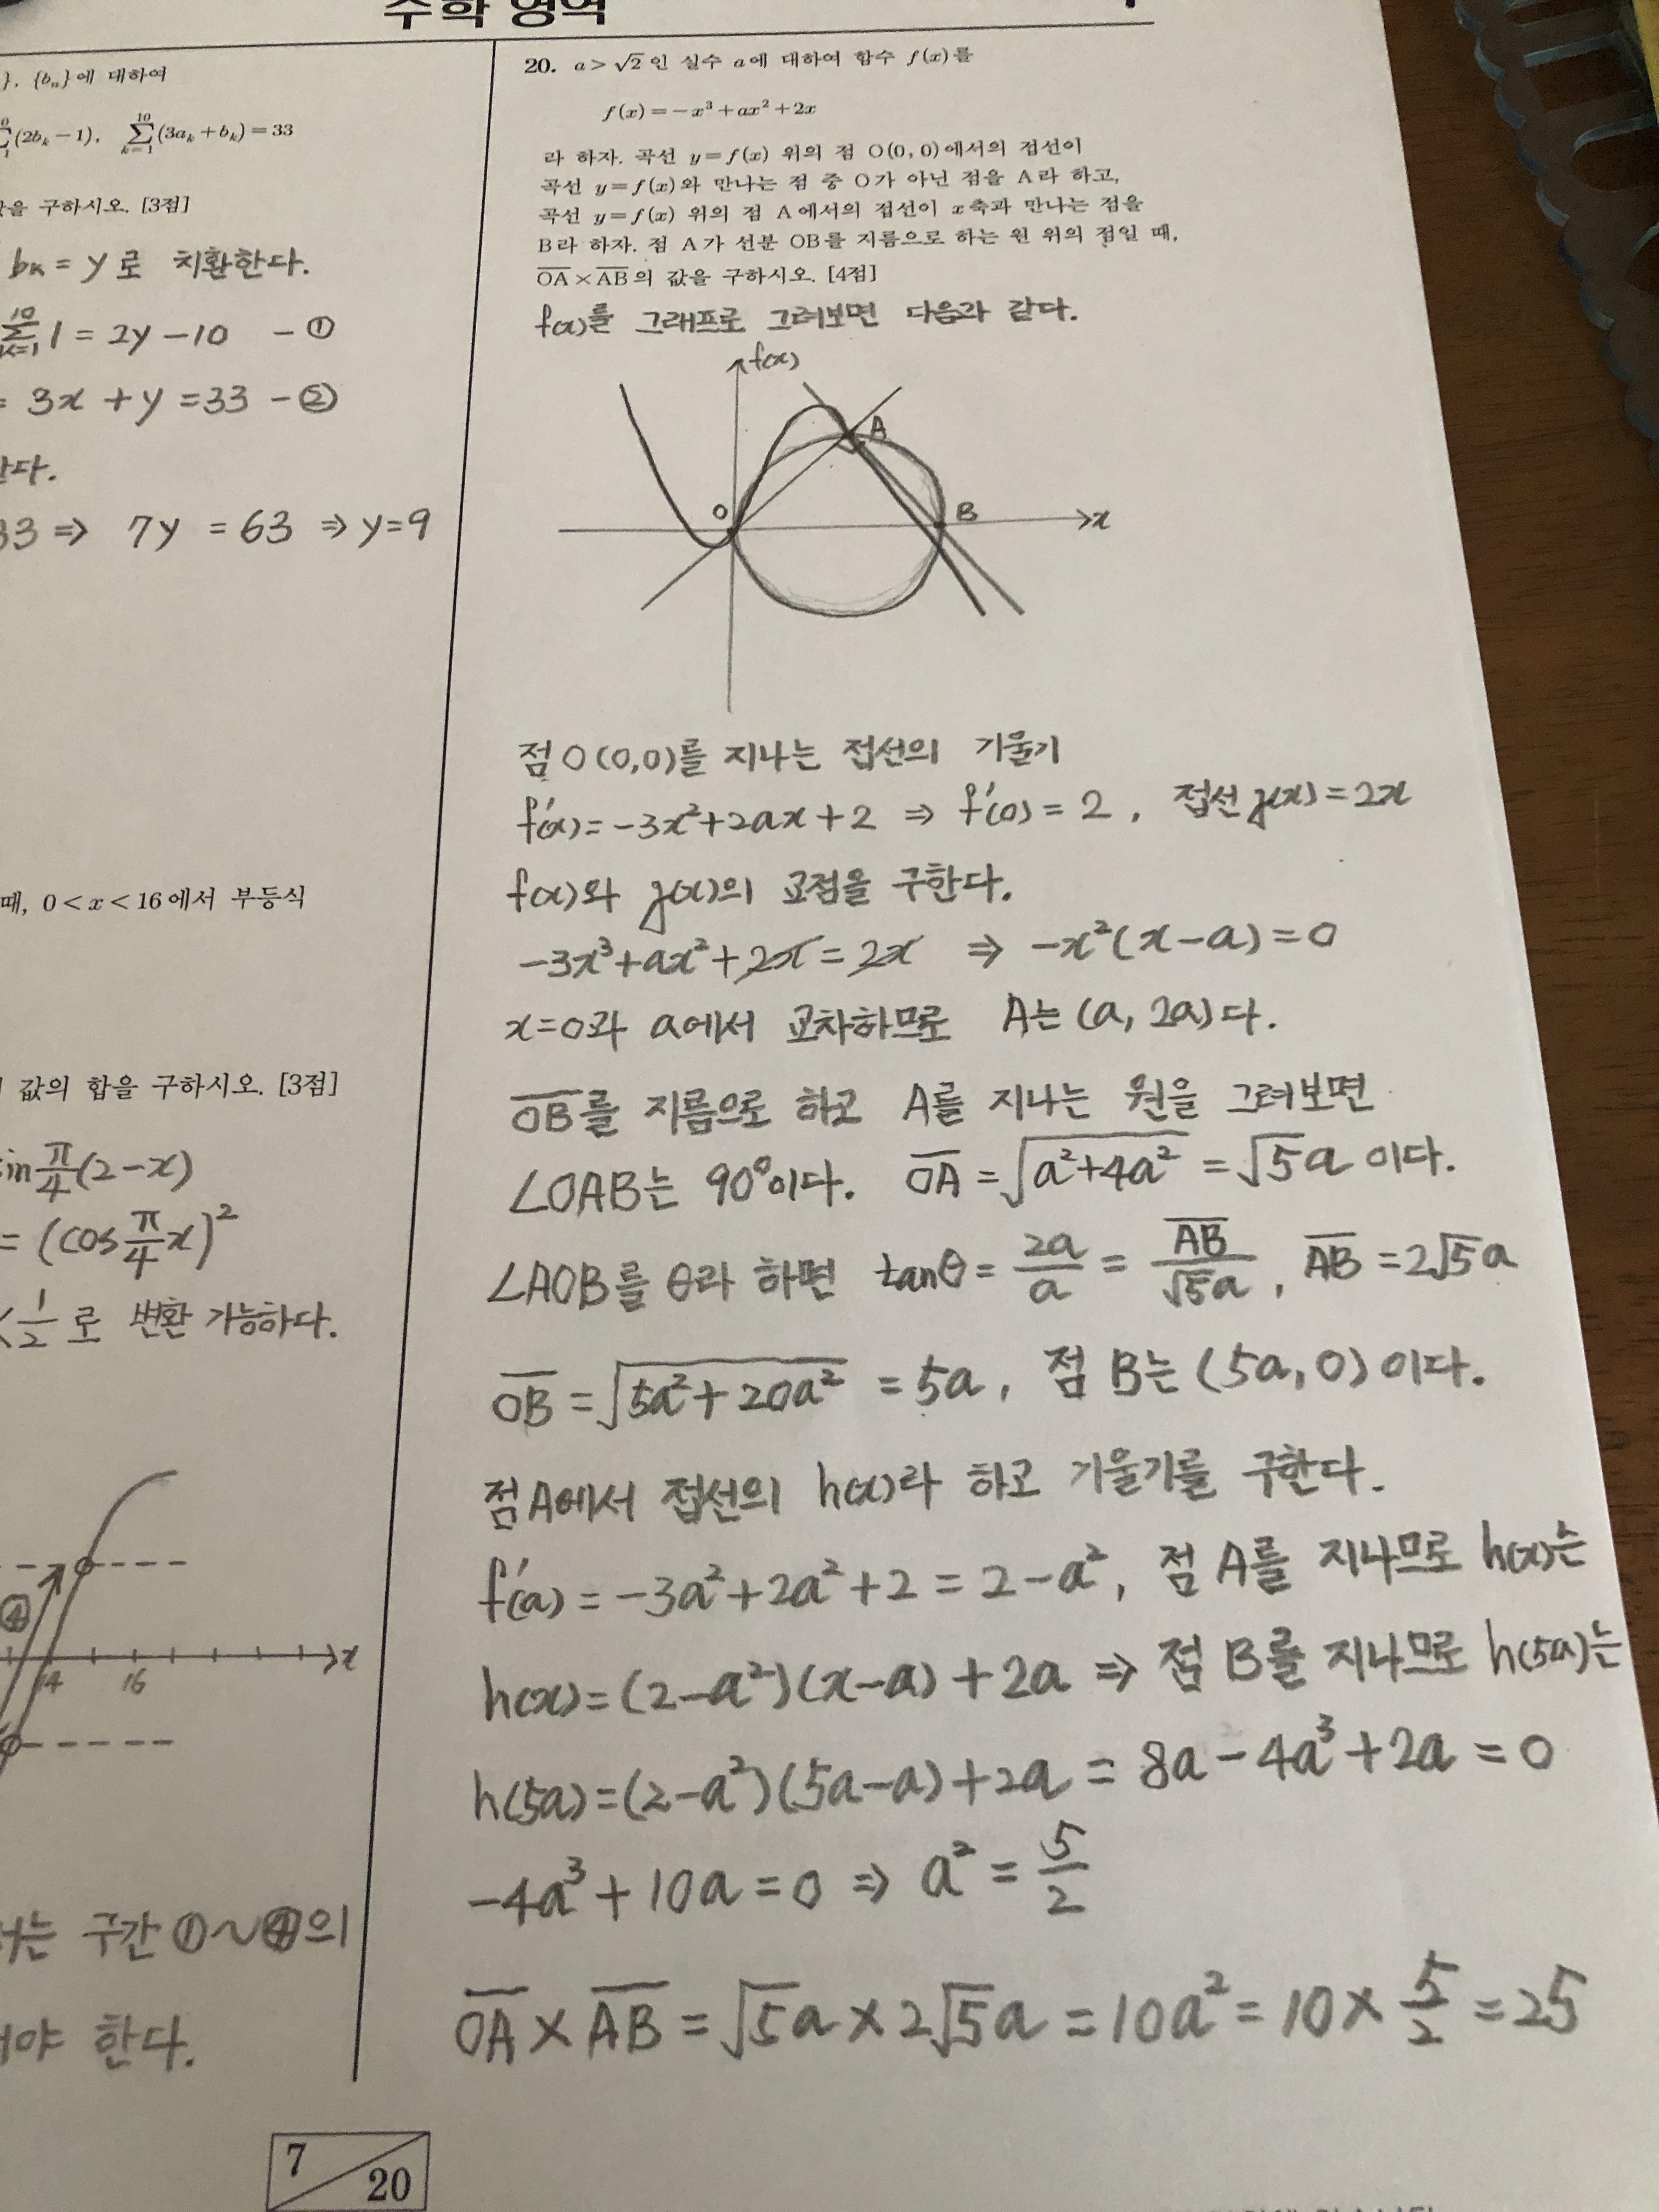 수학 영역
}, {bₙ}에 대하여
(2bₖ-1), \sum_{k=1}^{10}(3aₖ+bₖ)=33
을 구하시오. [3점]
bₖ = y로 치환한다.
\sum_{k=1}^{10} 1 = 2y-10 -①
= 3x+y=33 -②
33 ⇒ 7y = 63 ⇒ y=9
때, 0<x<16에서 부등식
값의 합을 구하시오. [3점]
sin\frac{π}{4}(2-x)
= (cos\frac{π}{4}x)²
<\frac{1}{2}로 변환 가능하다.
④
x
14 16
구간 ①~④의
한다.
7
20
20. a>√2인 실수 a에 대하여 함수 f(x)를
f(x)=-x³+ax²+2x
라 하자. 곡선 y=f(x) 위의 점 O(0, 0)에서의 접선이
곡선 y=f(x)와 만나는 점 중 O가 아닌 점을 A라 하고,
곡선 y=f(x) 위의 점 A에서의 접선이 x축과 만나는 점을
B라 하자. 점 A가 선분 OB를 지름으로 하는 원 위의 점일 때,
\overline{OA}×\overline{AB}의 값을 구하시오. [4점]
f(x)를 그래프로 그려보면 다음과 같다.
f(x)
A
O
B
x
점 O(0,0)를 지나는 접선의 기울기
f'(x)=-3x²+2ax+2 ⇒ f'(0)=2, 접선 g(x)=2x
f(x)와 g(x)의 교점을 구한다.
-3x³+ax²+2x=2x ⇒ -x²(x-a)=0
x=0과 a에서 교차하므로 A는 (a, 2a)다.
\overline{OB}를 지름으로 하고 A를 지나는 원을 그려보면
∠OAB는 90°이다. \overline{OA}=\sqrt{a²+4a²}=√5a이다.
∠AOB를 θ라 하면 tanθ=\frac{2a}{a}=\frac{\overline{AB}}{√5a}, \overline{AB}=2√5a
\overline{OB}=\sqrt{5a²+20a²}=5a, 점 B는 (5a, 0)이다.
점A에서 접선의 h(x)라 하고 기울기를 구한다.
f'(a)=-3a²+2a²+2=2-a², 점 A를 지나므로 h(x)는
h(x)=(2-a²)(x-a)+2a ⇒ 점 B를 지나므로 h(5a)는
h(5a)=(2-a²)(5a-a)+2a=8a-4a³+2a=0
-4a³+10a=0 ⇒ a²=\frac{5}{2}
\overline{OA}×\overline{AB}=√5a×2√5a=10a²=10×\frac{5}{2}=25